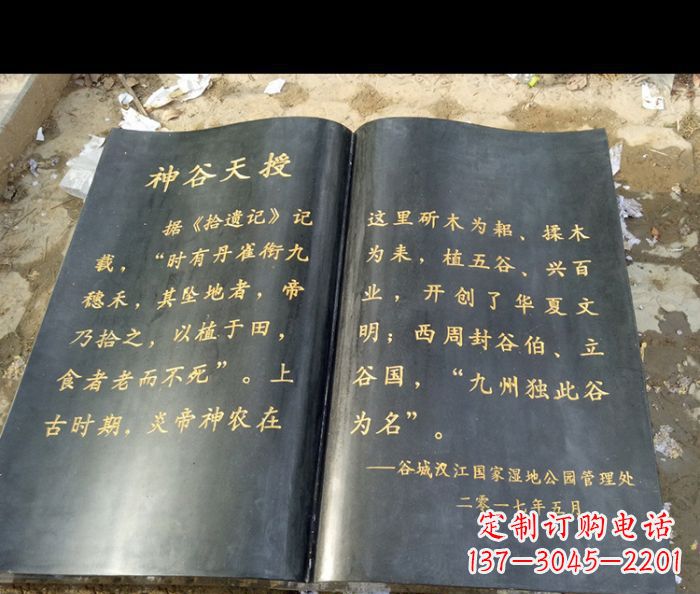 神谷天授
据《拾遗记》记
载，“时有丹雀衔九
穗禾，其坠地者，帝
乃拾之，以植于田，
食者老而不死”。上
古时期，炎帝神农在
这里斫木为耜、揉木
为耒，植五谷、兴百
业，开创了华夏文
明；西周封谷伯、立
谷国，“九州独此谷
为名”。
——谷城汉江国家湿地公园管理处
二零一七年五月
定制订购电话
137-3045-2201